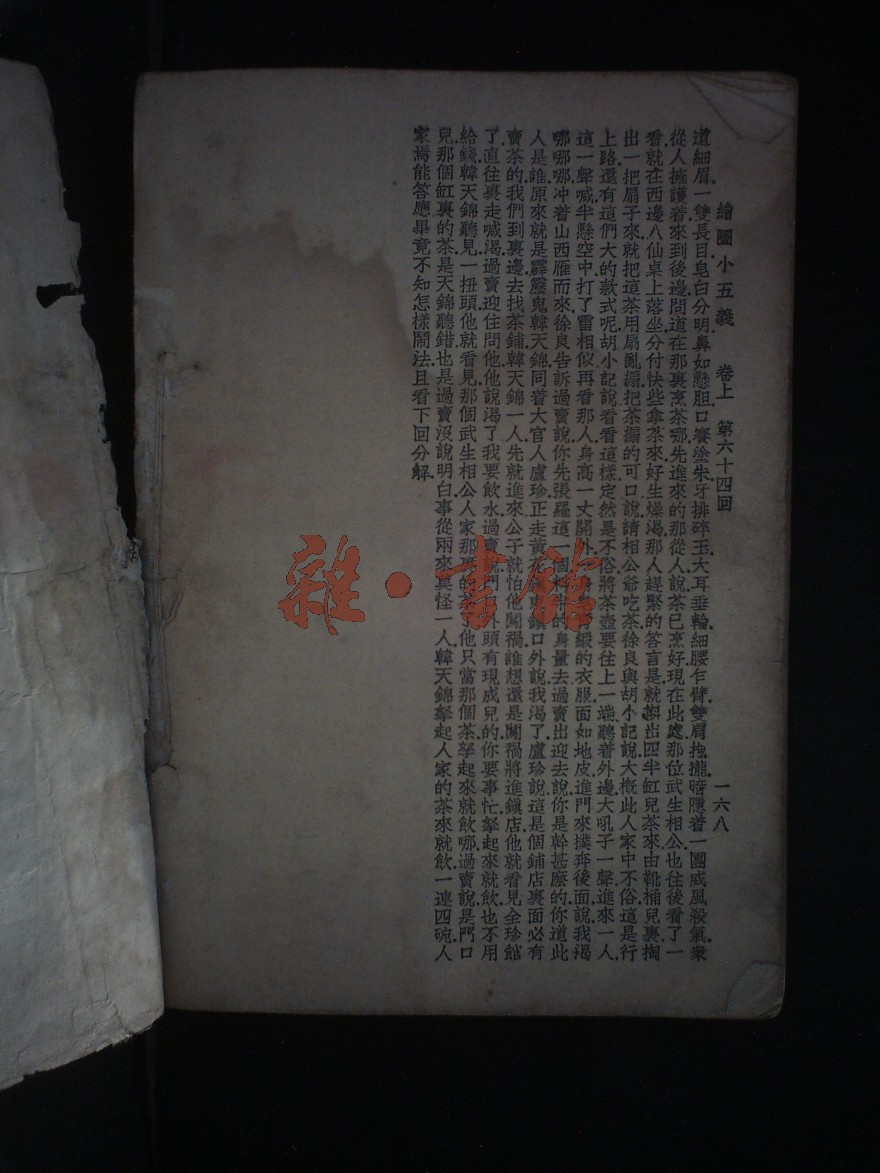 繪圖小五義　卷上　第六十四回　一六八
道細眉一雙長目皂白分明鼻如懸胆口賽塗朱牙排碎玉大耳垂輪細腰乍臂雙眉抱攏暗隱着一團威風殺氣衆
從人擁護着來到後邊問道在那裏烹茶哪先進來的那從人說茶已烹好現在此處那位武生相公也往後看了一
看就在西邊八仙桌上落坐分付快些拿茶來好生燥渴那人趕緊的答言是就斟出四半缸兒茶來由靴桶兒裏掏
出一把扇子來就把這茶用扇亂搧把茶搧的可口說請相公爺吃茶徐良與胡小記說大槪此人家中不俗這是行
上路還有這們大的款式呢胡小記說看看這樣定然是不俗將茶壺要往上一端聽着外邊大吼子一聲進來一人
這一聲喊半懸空中打了雷相似再看那人身高一丈開外一身青緞的衣服面如地皮進門來撲奔後面說我渴
哪哪哪冲着山西雁而來徐良告訴過賣說你先張羅這一個的身量去過賣出迎去說你是幹甚麽的你道此
人是誰原來就是霹靂鬼韓天錦同着大官人盧珍正走黃花鎭鎭口外說我渴了盧珍說這是個鋪店裏面必有
賣茶的我們到裏邊去找茶鋪韓天錦一人先就進來公子就怕他闖禍誰想還是闖禍將進鎭店他就看見全珍館
了直往裏走喊渴過賣迎住問他他說渴了我要飲水過賣說門口外頭有現成兒的你要事忙拏起來就飲也不用
給錢韓天錦聽見一扭頭他就看見那個武生相公人家那裏的茶了他只當那個茶拏起來就飲哪過賣說是門口
兒那個缸裏的茶是天錦聽錯也是過賣沒說明白事從兩來莫怪一人韓天錦拏起人家的茶來就飲一連四碗人
家焉能答應畢竟不知怎樣鬧法且看下回分解
雜·書館